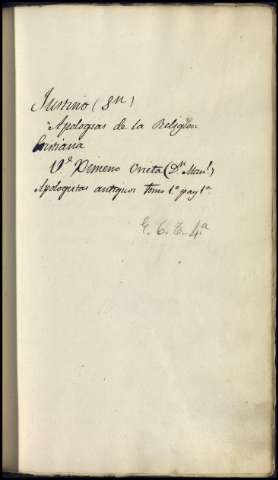 Justino (Sn)
Apologias de la Religion
Cristiana
Ve Ximeno Urieta (Dn Manl)
Apologistas antiguos tomo 1º pag 1ª
E. 6. T. 4ª